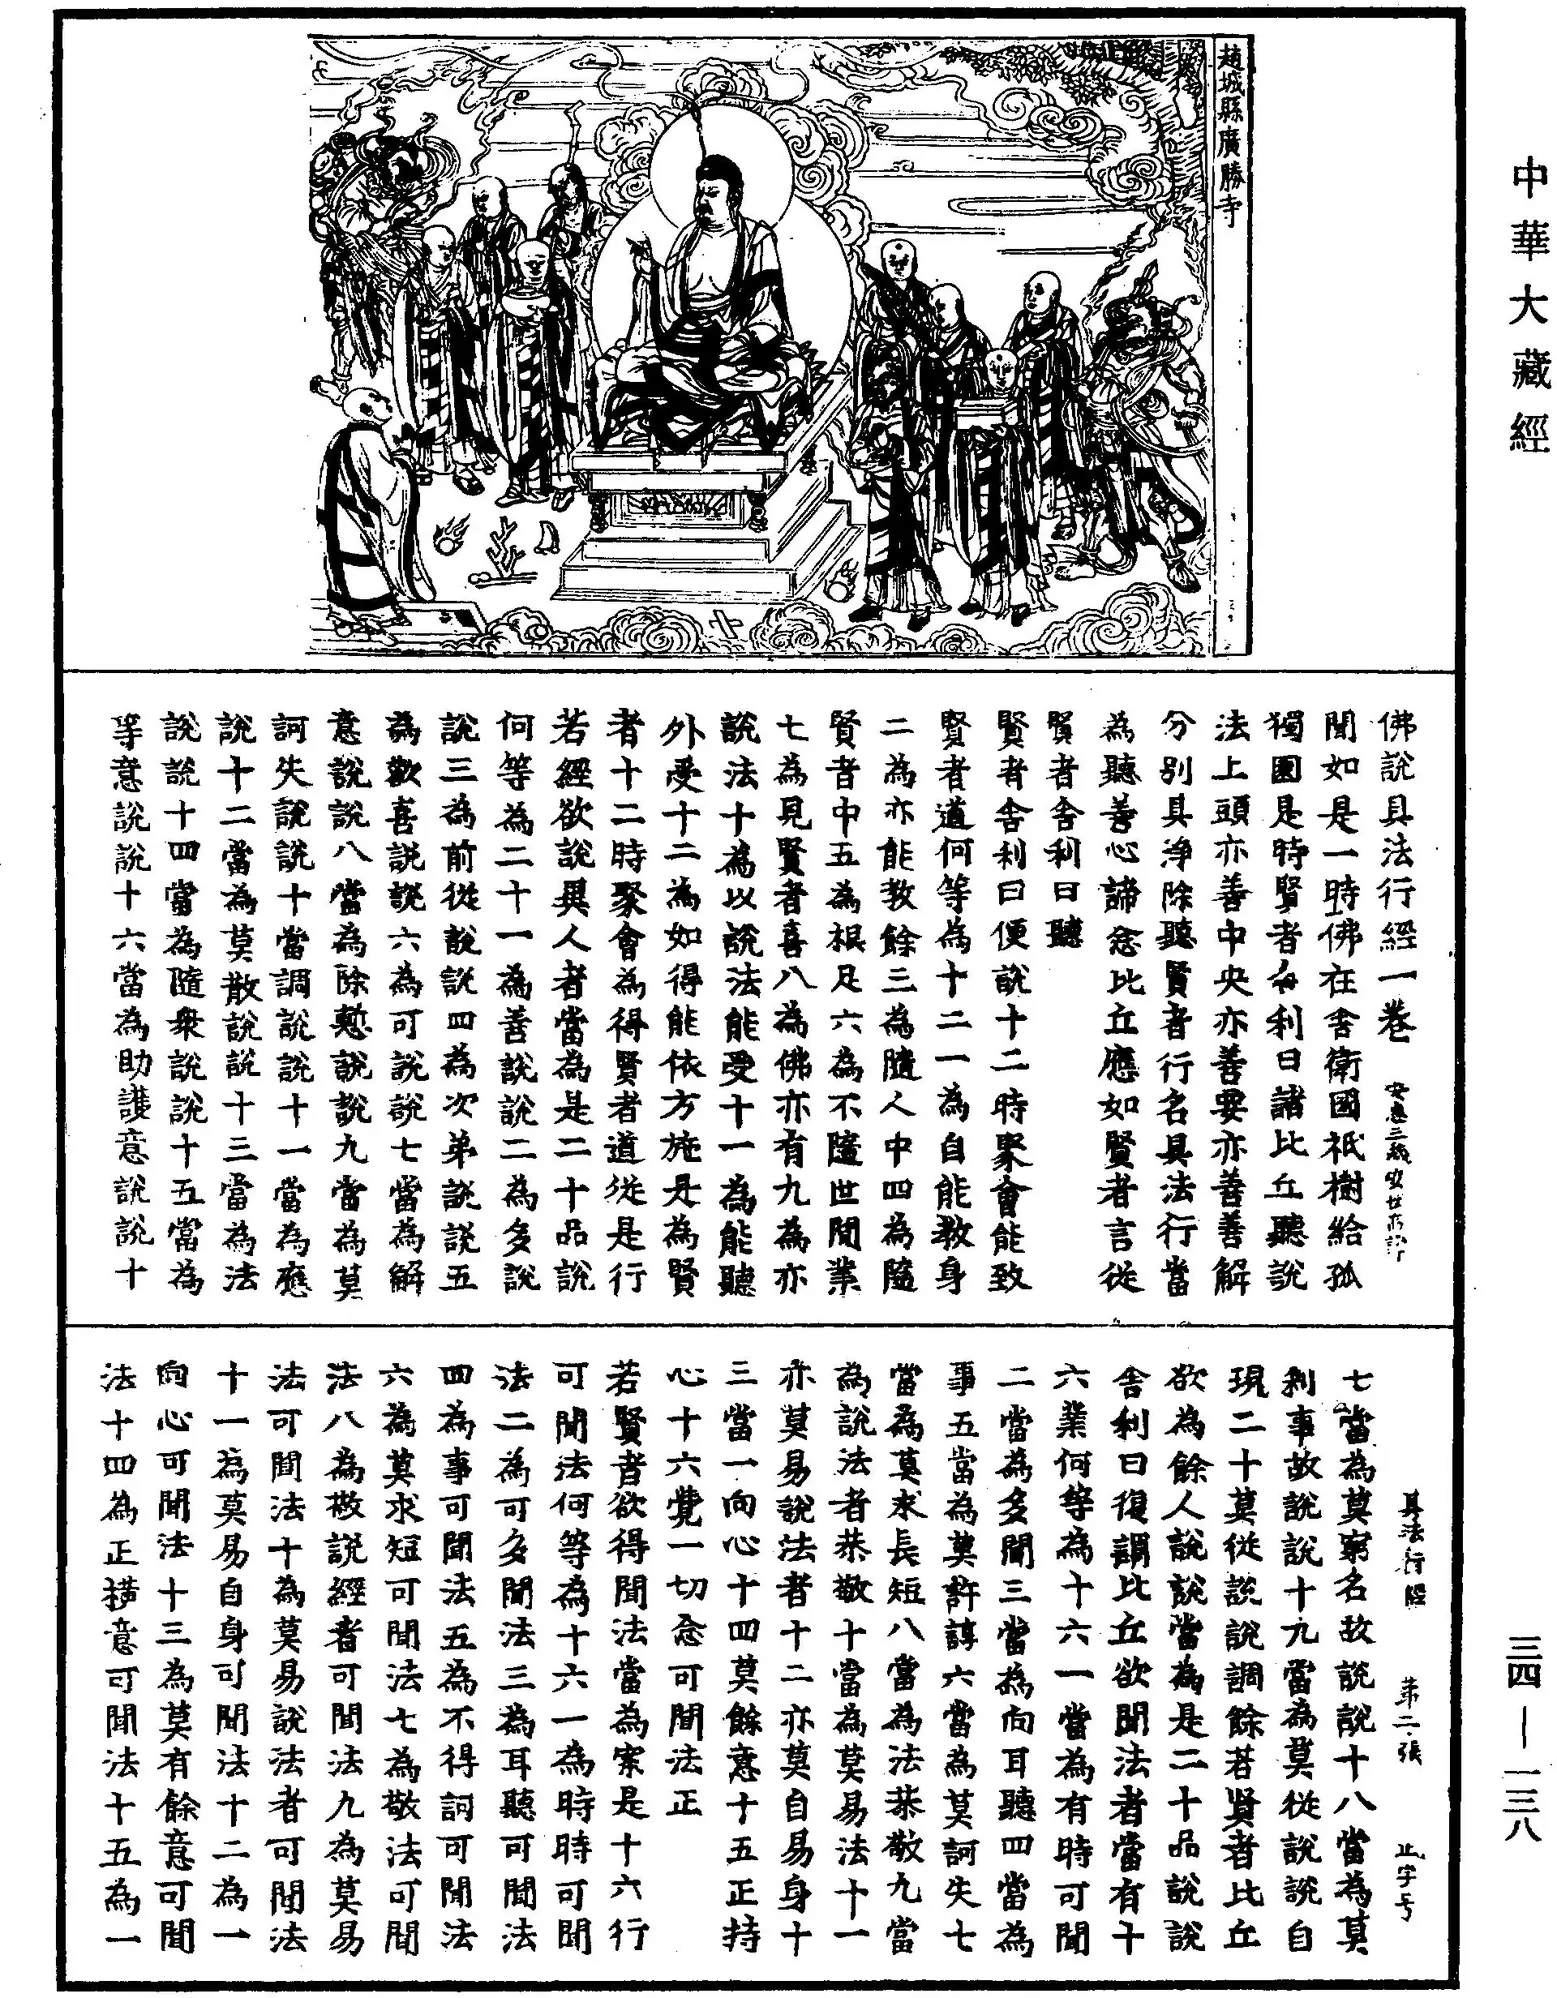 中華大藏經
趙城縣廣勝寺
佛說具法行經一卷
聞如是一時佛在舍衛國祇樹給孤
獨園是時賢者舍利曰諸比丘聽說
法上頭亦善中央亦善要亦善善解
分別具淨除聽賢者行名具法行當
為聽善心諦念比丘應如賢者言從
賢者舍利曰聽
賢者舍利曰便說十二時聚會能致
賢者道何等為十二一為自能教身
二為亦能教餘三為隨人中四為隨
賢者中五為根足六為不隨世閒業
七為見賢者喜八為佛亦有九為亦
說法十為以說法能受十一為能聽
外受十二為如得能依方施是為賢
者十二時聚會為得賢者道從是行
若經欲說異人者當為是二十品說
何等為二十一為善說說二為多說
說三為前從說說四為次弟說說五
為歡喜說說六為可說說七當為解
意說說八當為除慙說說九當為莫
訶失說說十當調說說十一當為應
說十二當為莫散說說十三當為法
說說十四當為隨衆說說十五當為
等意說說十六當為助護意說說十
七當為莫窮名故說說十八當為莫
利事故說說十九當為莫從說說自
現二十莫從說說調餘若賢者比丘
欲為餘人說說當為是二十品說說
舍利曰復謂比丘欲聞法者當有十
六業何等為十六一當為有時可聞
二當為多聞三當為向耳聽四當為
事五當為莫訴諄六當為莫訶失七
當為莫求長短八當為法恭敬九當
為說法者恭敬十當為莫易法十一
亦莫易說法者十二亦莫自易身十
三當一向心十四莫餘意十五正持
心十六覺一切念可聞法正
若賢者欲得聞法當為案是十六行
可聞法何等為十六一為時時可聞
法二為可多聞法三為耳聽可聞法
四為事可聞法五為不得訶可聞法
六為莫求短可聞法七為敬法可聞
法八為敬說經者可聞法九為莫易
法可聞法十為莫易說法者可聞法
十一為莫易自身可聞法十二為一
向心可聞法十三為莫有餘意可聞
法十四為正撗意可聞法十五為一
具法行經 第二張 止字号
三四—一三八